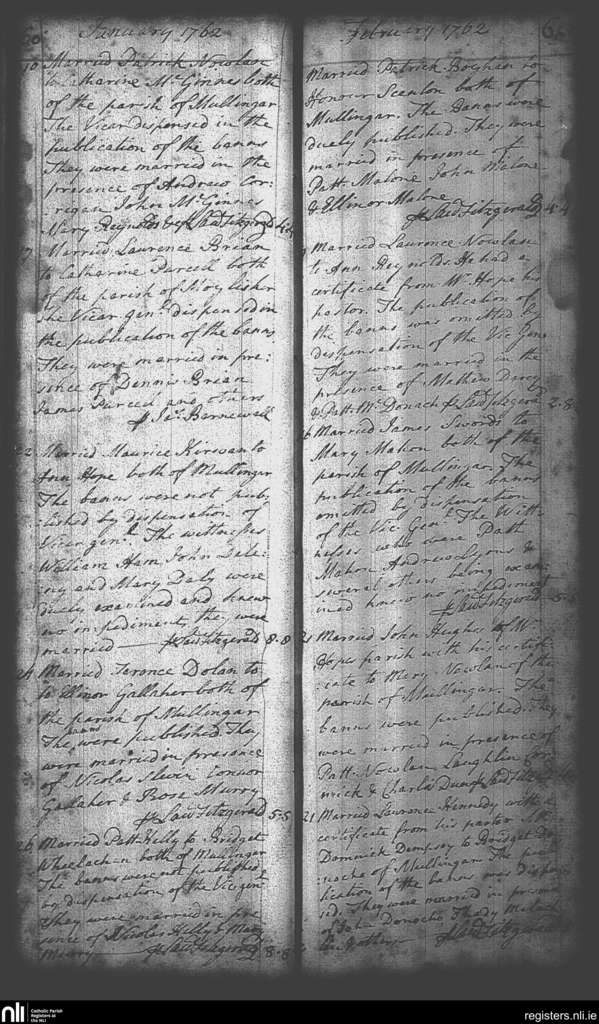 January 1762
10 Married Patrick Nowlan
to Catharine McGinnes both
of the parish of Mullingar
The Vicar dispensed in the
publication of the banns
They were married in the
presence of Andrew Cor:
regan John McGinnes
Mary Reynolds & Law: Fitzgerald
17 Married Laurence Brian
to Catharine Purcell both
of the parish of
The Vicar genl dispensed in
the publication of the banns
They were married in pre:
sence of Dennis Brian
James Purcell and others
Ja: Barnewall
22 Married Maurice Kirwan to
Ann Hope both of Mullingar
The banns were not pub:
lished by dispensation of
Vicar genl The wittnesses
William Ham John Dele:
ny and Mary Daly were
duely examined and knew
no impediment, they were
married Law: Fitzgerald 8-8
24 Married Terence Dolan to
to Elinor Gallaher both of
the parish of Mullingar
The banns were published They
were married in presence
of Nicolas Connor
Gallaher & Rose Murry
Law: Fitzgerald 5-5
26 Married Patt: Kelly to Bridget
both of Mullingar
The banns were not published
by dispensation of the Vic: genl
They were married in pre
sence of Nicolas Kelly & Mary
Murry Law: Fitzgerald 8-8
February 1762
Married Patrick to
Honour Scanlon both of
Mullingar. The banns were
duely published. They were
married in presence of
Patt: Malone John Malone
& Ellinor Malone
Law: Fitzgerald 4-4
Married Laurence Nowlan
to Ann Reynolds. He had a
certificate from Mr. Hope his
pastor. The publication of
the banns was omitted by
dispensation of the Vic: Gen:
They were married in the
presence of Mathew
& Patt: McDonach Law: Fitzgerald 2-8
Married James Swords to
Mary Mahon both of the
parish of Mullingar. The
publication of the banns
omitted by dispensation
of the Vic: Genl. The Witt:
nesses who were Patt:
Mahon Andrew Lyons &
several others being exam:
ined knew no impediment
Law: Fitzgerald 5-5
21 Married John Hughs of Mr.
Hopes parish with his certifi:
cate to Mary Nowlan of the
parish of Mullingar. The
banns were published. They
were married in presence of
Patt: Nowlan Laughlin Cor:
mick & Charls Law: Fitz:
21 Married Laurence Kennedy with a
certificate from his pastor Mr.
Dominick Dempsey to Bridget Do:
noche of Mullingar. The pub:
lication of the banns was dispen
sed. They were married in presence
of John Donocho Thady
Law: Fitzgerald
nli
Catholic Parish
Registers at
the NLI
registers.nli.ie